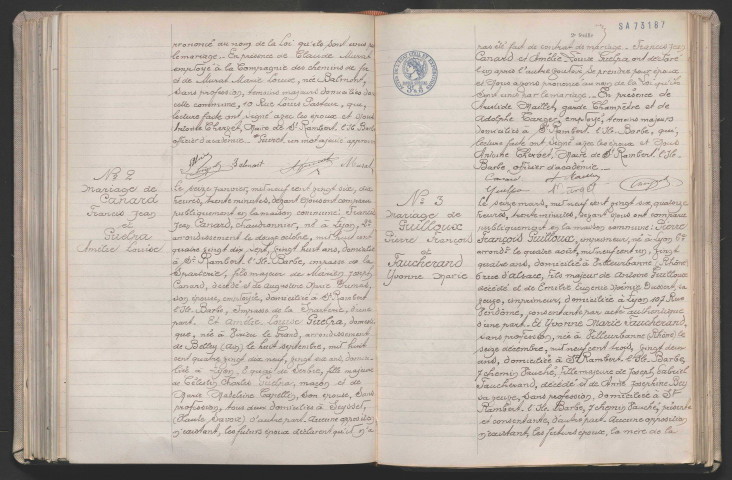 prononcé au nom de la Loi qu'ils sont unis par
le mariage. En présence de Claude Murat
employé à la Compagnie des chemins de fer
et de Murat Marie Louise, née Belmont,
sans profession, témoins majeurs domiciliés dans
cette commune, 10 Rue Louis Pasteur, qui,
lecture faite ont signé avec les époux et Nous
Antoine Cherpet, Maire de St Rambert l'Ile Barbe
officier d'académie.
Belmont Murat
No 2
Mariage de
Canard
Francis Jean
et
Amélie Louise
Le seize janvier, mil neuf cent vingt six, dix
heures, trente minutes, devant Nous ont comparu
publiquement en la maison commune: Francis
Jean Canard, né à Lyon,
arrondissement le douze octobre, mil huit cent
quatre vingt dix sept, vingt huit ans, domicilié
à St Rambert l'Ile Barbe, impasse de la
fils majeur de Joseph
Canard, décédé et de Marie
son épouse, employée, domiciliée à St Rambert
l'Ile Barbe, impasse de la d'une
part. Et Amélie Louise
née à le Grand, arrondissement
de Belley (Ain) le huit septembre, mil huit
cent quatre vingt dix neuf, vingt six ans, domi-
ciliée à Lyon, fille majeure
de Célestin Charles maçon et de
Marie Madeleine son épouse, sans
profession, tous deux domiciliés à Seyssel,
(Haute Savoie) d'autre part. Aucune opposition
n'existant, les futurs époux déclarent qu'il n'a
SA 73187
pas été fait de contrat de mariage. Francis Jean
Canard et Amélie Louise ont déclaré
l'un après l'autre vouloir se prendre pour époux
et Nous avons prononcé au nom de la Loi qu'ils
sont unis par le mariage. En présence de
Maillet, garde champêtre et de
Adolphe employé, témoins majeurs
domiciliés à St Rambert l'Ile Barbe, qui,
lecture faite ont signé avec les époux et Nous
Antoine Cherpet, Maire de St Rambert l'Ile
Barbe officier d'académie.
Canard
No 3
Mariage de
Guilloux
Pierre François
et
Faucherand
Yvonne Marie
Le seize mars, mil neuf cent vingt six, quatorze
heures, trente minutes, devant Nous ont comparu
publiquement en la maison commune: Pierre
François Guilloux, imprimeur, né à Lyon
arrondt le quatre août, mil neuf cent un, vingt
quatre ans, domicilié à Villeurbanne (Rhône)
d'Alsace, fils majeur de Antoine Guilloux
décédé et de Emilie Eugénie Noémie
sa veuve, imprimeur, domiciliée à Lyon 107 Rue
Vendôme, consentante par acte authentique
d'une part. Et Yvonne Marie Faucherand,
sans profession, née à Villeurbanne (Rhône) le
seize décembre, mil neuf cent trois, vingt deux
ans, domiciliée à St Rambert l'Ile Barbe,
7 chemin fille majeure de Joseph Gabriel
Faucherand, décédé et de Joséphine
sa veuve, sans profession, domiciliée à St
Rambert l'Ile Barbe, 7 chemin présente
et consentante, d'autre part. Aucune opposition
n'existant, les futurs époux, la mère de la